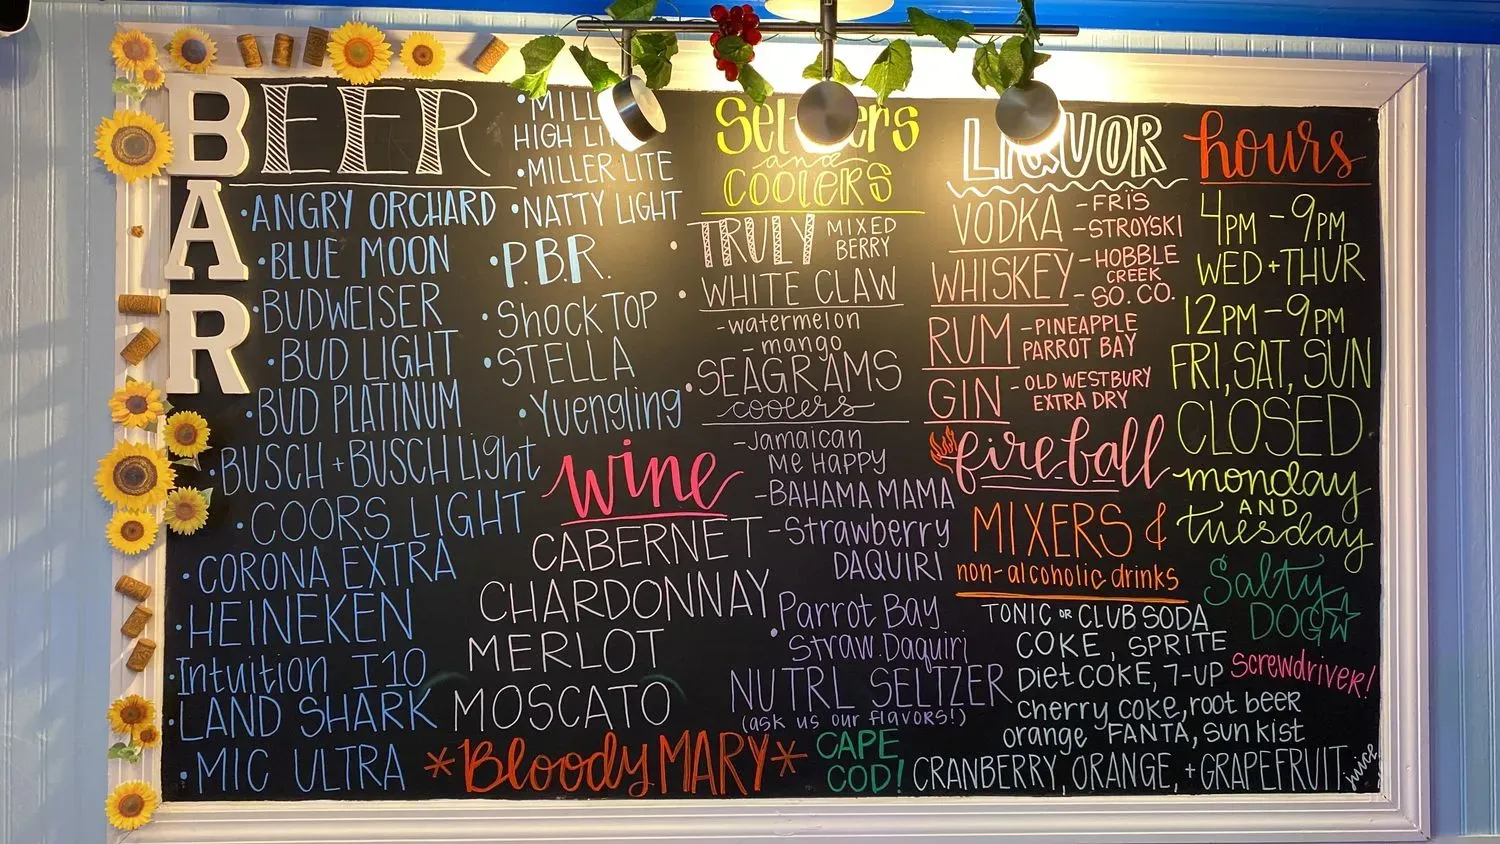 BAR
BEER
• ANGRY ORCHARD
• BLUE MOON
• BUDWEISER
• BUD LIGHT
• BUD PLATINUM
• BUSCH + BUSCH Light
• COORS LIGHT
• CORONA EXTRA
• HEINEKEN
• Intuition I10
• LAND SHARK
• MIC ULTRA
• MILL
HIGH LI
• MILLER LITE
• NATTY LIGHT
• P.B.R.
• Shock TOP
• STELLA
• Yuengling
wine
CABERNET
CHARDONNAY
MERLOT
MOSCATO
*Bloody MARY*
Seltzers
and
COOLERS
• TRULY MIXED
BERRY
• WHITE CLAW
- watermelon
- mango
• SEAGRAMS
coolers
- Jamaican
Me Happy
- BAHAMA MAMA
- Strawberry
DAQUIRI
• Parrot Bay
Straw. Daquiri
NUTRL SELTZER
(ask us our flavors!)
CAPE
COD!
LIQUOR
VODKA - FRIS
- STROYSKI
WHISKEY - HOBBLE
CREEK
- SO. CO.
RUM - PINEAPPLE
PARROT BAY
GIN - OLD WESTBURY
EXTRA DRY
fireball
MIXERS &
non-alcoholic drinks
TONIC OR CLUB SODA
COKE, SPRITE
Diet COKE, 7-UP
cherry coke, root beer
orange FANTA, sunkist
CRANBERRY, ORANGE, + GRAPEFRUIT juice
hours
4PM - 9PM
WED + THUR
12PM - 9PM
FRI, SAT, SUN
CLOSED
monday
AND
tuesday
Salty
DOG
Screwdriver!